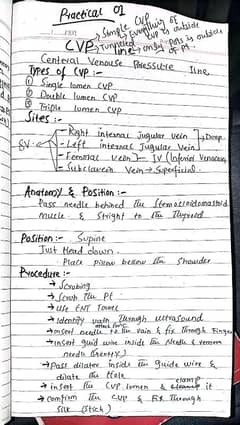 Practical 01
Single CVP
→ Everything of
CVP is outside
Tunneled
line → only Pots is outside
of Pt.
CVP:-
Centeral Venouse Pressure line
Types of CVP :-
① Single lumen CVP
② Double lumen CVP
③ Triple lumen CVP
Sites :-
Right internal Jugular Vein
Left internal Jugular Vein } Deep.
Femoral Vein } IV (Inferior Venacava)
Subclavein Vein → Superficial.
Anatomy & Position :-
Pass needle behined the Sternocleidomastoid
mucle & Stright to the Thyroid
Position:- Supine
Just Head down.
Place pillow below the Shouder
Procedure :-
→ Scrobing
→ Scrob the Pt.
→ Use ENT Towel
→ Identify vain through ultrasound
→ insert needle to the vain & fix through Finger
→ insert guid wire inside the Needle & remove
needle
→ Pass dilator inside the guide wire &
dilate the Hole
→ insert the CVP lumen & clamp it
→ Confirm the CVP & Fix through
Silk (Stick)